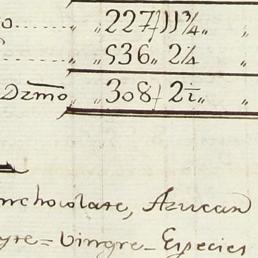 o...... „ „ 227// 11 3/4 „ „
„ „ 536 „ 2 1/4 „
Dzmo „ „ 308/ 2 1/2 „ „
chocolate, Azucar
Vinagre = Especies